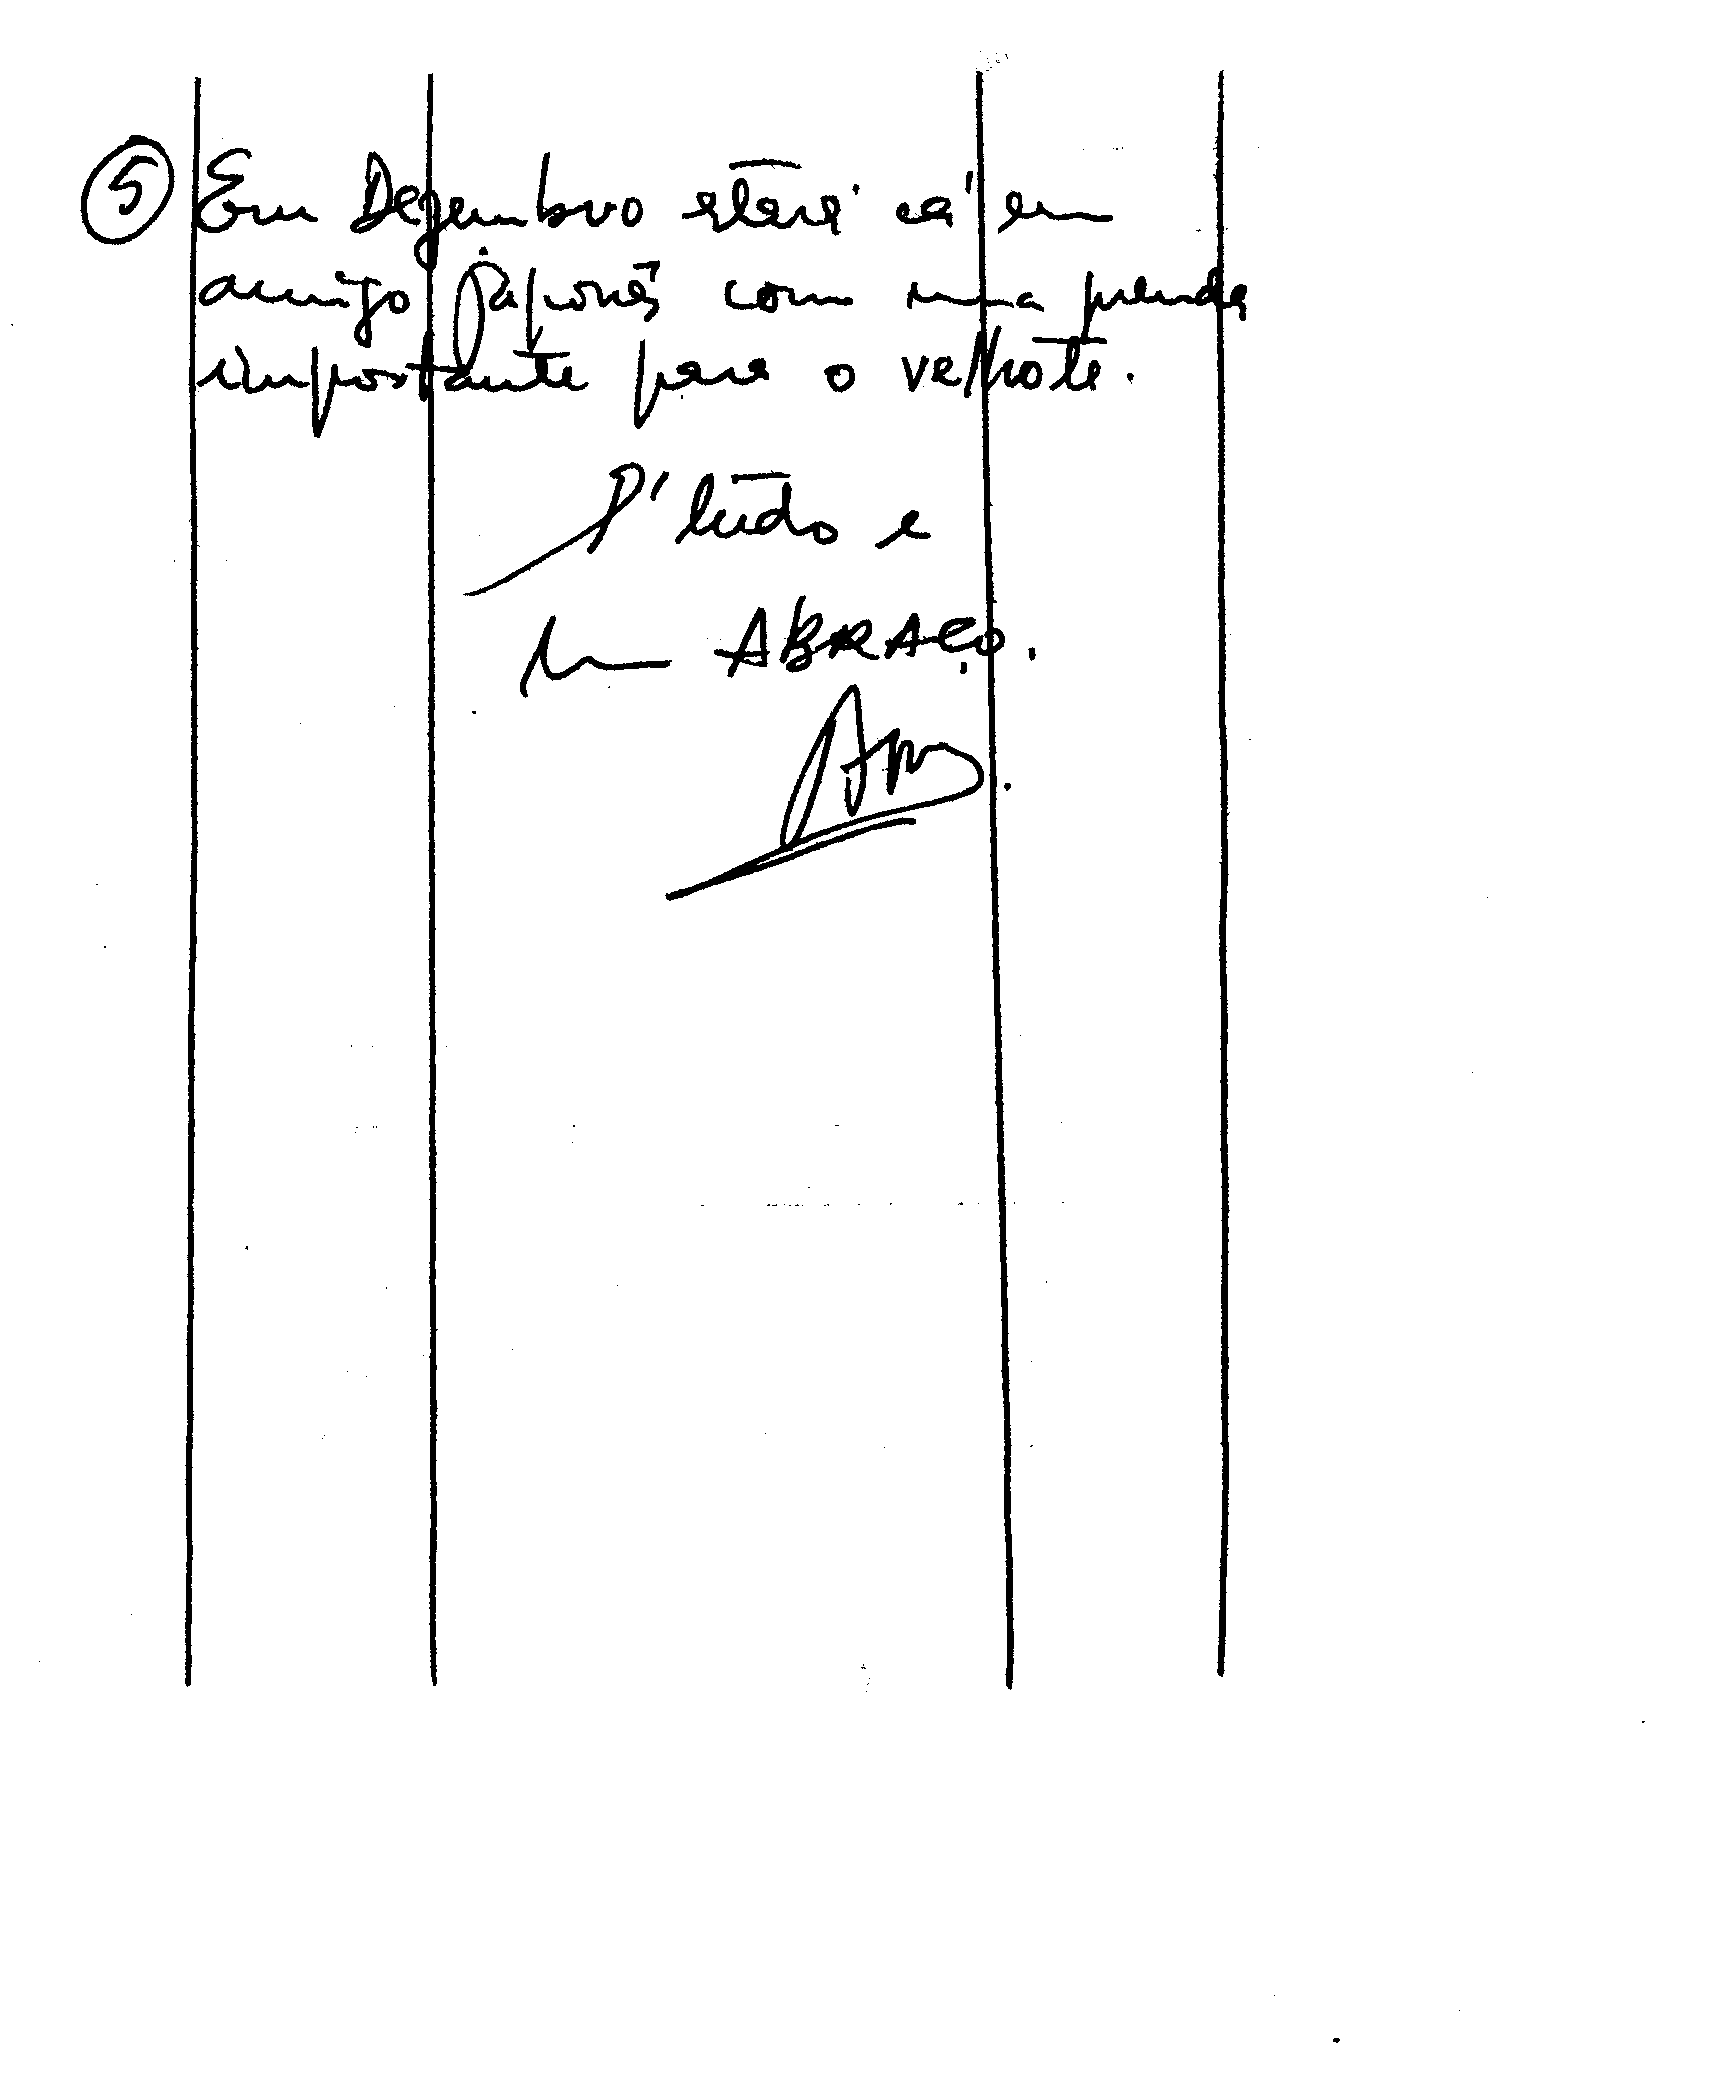 ⑤ Em Dezembro estará cá um
amigo Japonês com uma prenda
importante para o velhote.
P' tudo e
um ABRAÇO.